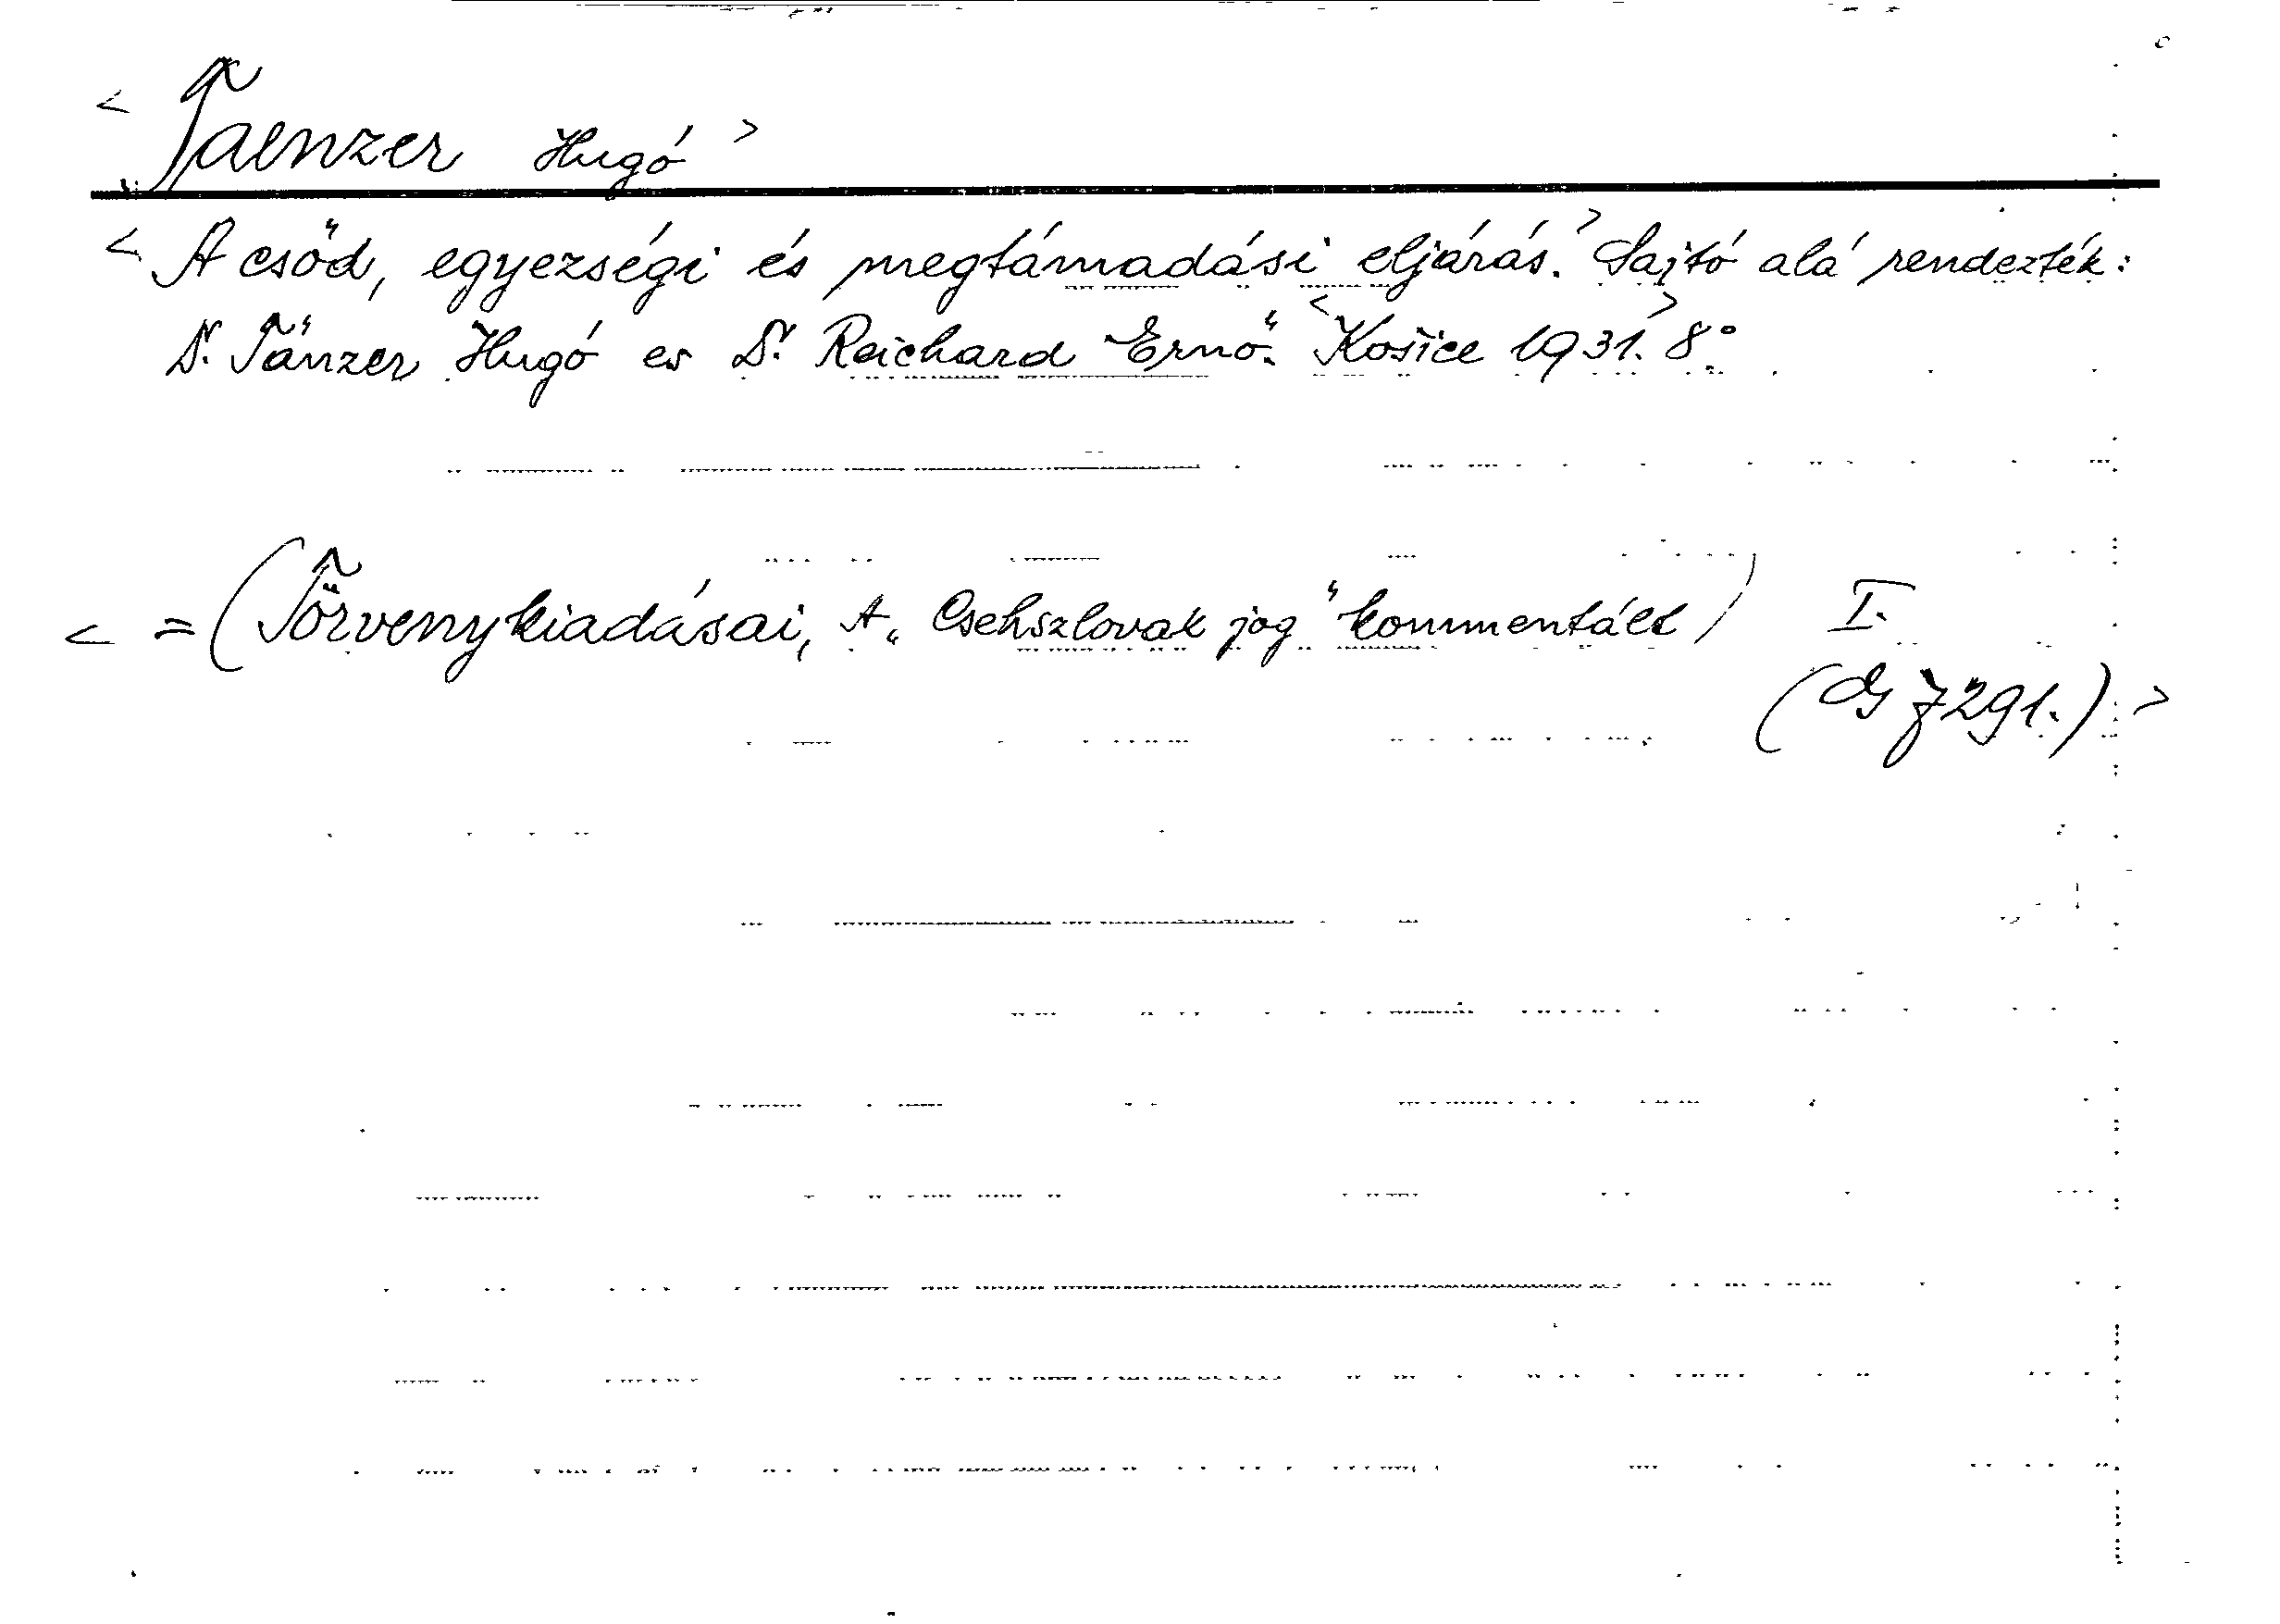 < Taenzer Hugó >
< A csőd, egyezségi és megtámadási eljárás. > Sajtó alá rendezték:
Dr. Tänzer Hugó es Dr. Reichard Ernő. < Košice 1931. > 8°
< = (Törvenykiadásai, A „Csehszlovak jog" kommentált) I.
291.) >